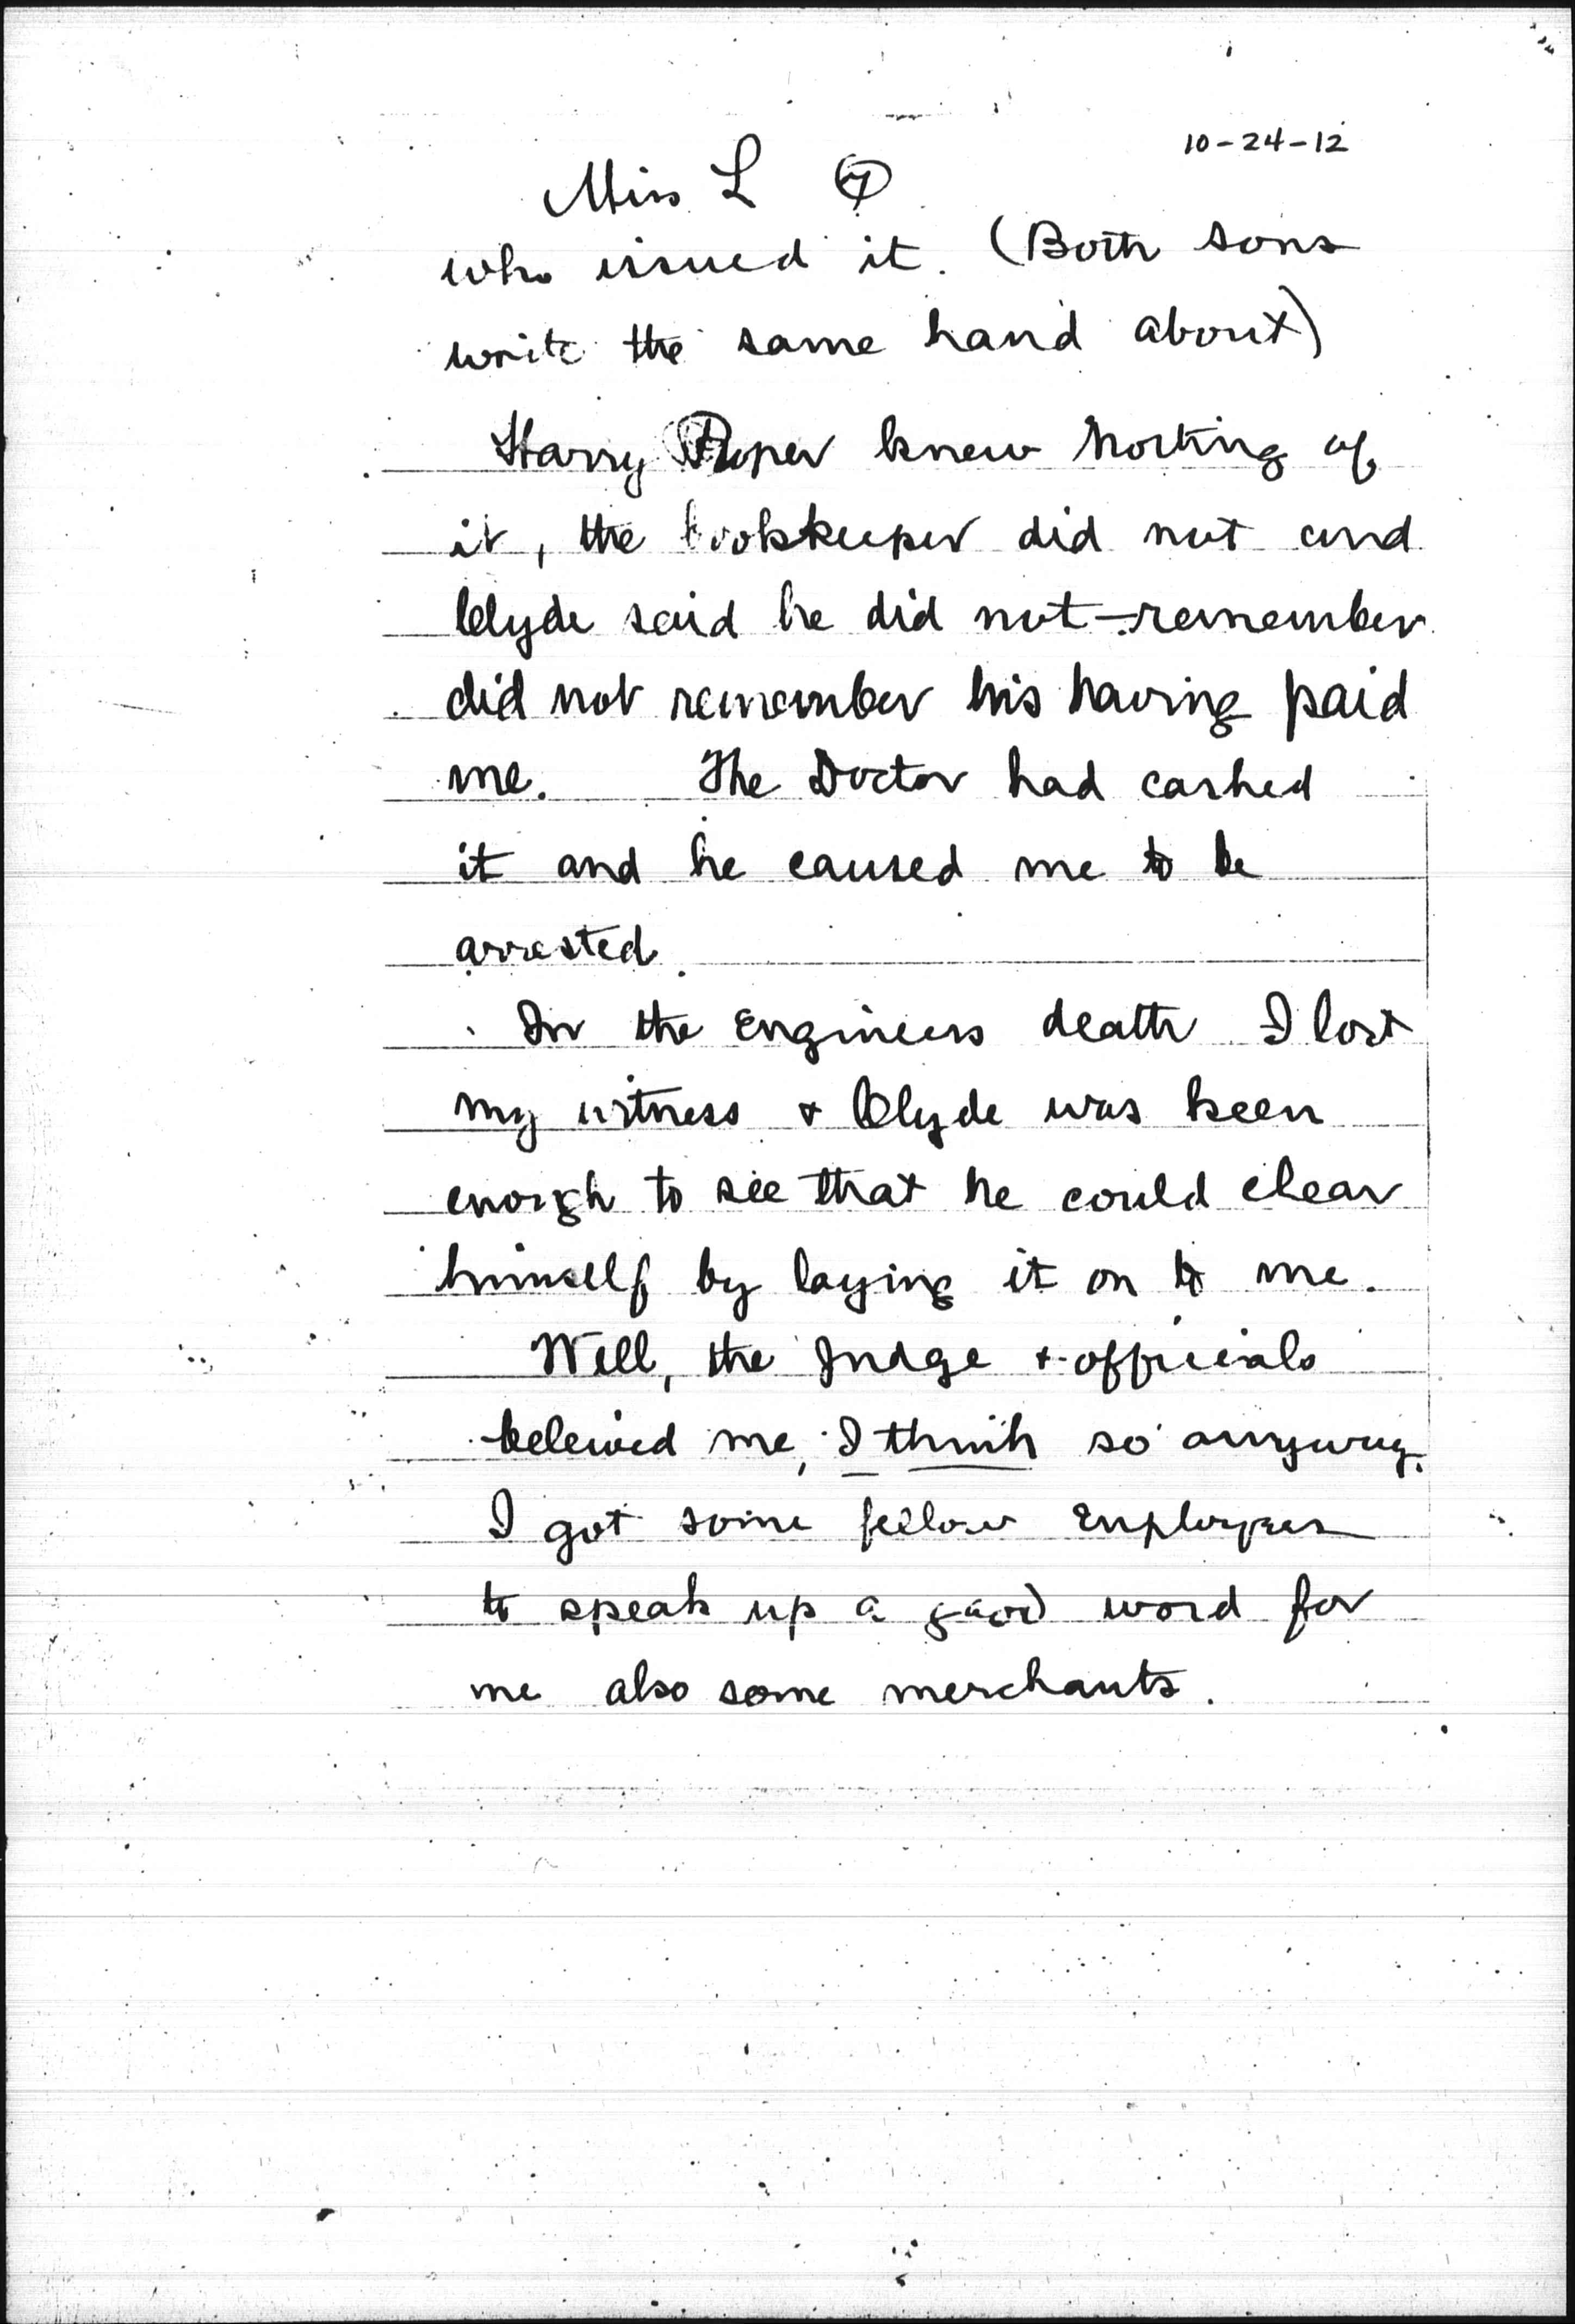 10-24-12
Miss L 7
who issued it. (Both sons
write the same hand about)
Harry Roper knew nothing of
it, the bookkeeper did not and
Clyde said he did not - remember
did not remember his having paid
me. The Doctor had cashed
it and he caused me to be
arrested.
In the Engineers death I lost
my witness + Clyde was keen
enough to see that he could clear
himself by laying it on to me.
Well, the Judge + officials
beleived me, I think so anyway.
I got some fellow Employees
to speak up a good word for
me also some merchants.